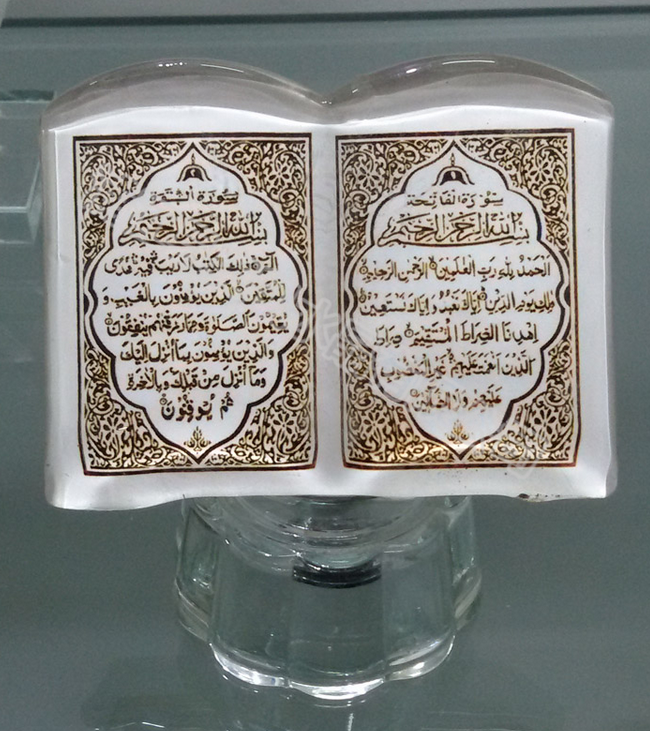 سورة الفاتحة
بسم الله الرحمن الرحيم
الحمد لله رب العلمين الرحمن الرحيم
ملك يوم الدين إياك نعبد وإياك نستعين
اهدنا الصراط المستقيم صراط
الذين أنعمت عليهم غير المغضوب
عليهم ولا الضالين
سورة البقرة
بسم الله الرحمن الرحيم
الم ذلك الكتب لا ريب فيه هدى
للمتقين الذين يؤمنون بالغيب و
يقيمون الصلوة ومما رزقنهم ينفقون
والذين يؤمنون بما أنزل إليك
وما أنزل من قبلك وبالآخرة
هم يوقنون